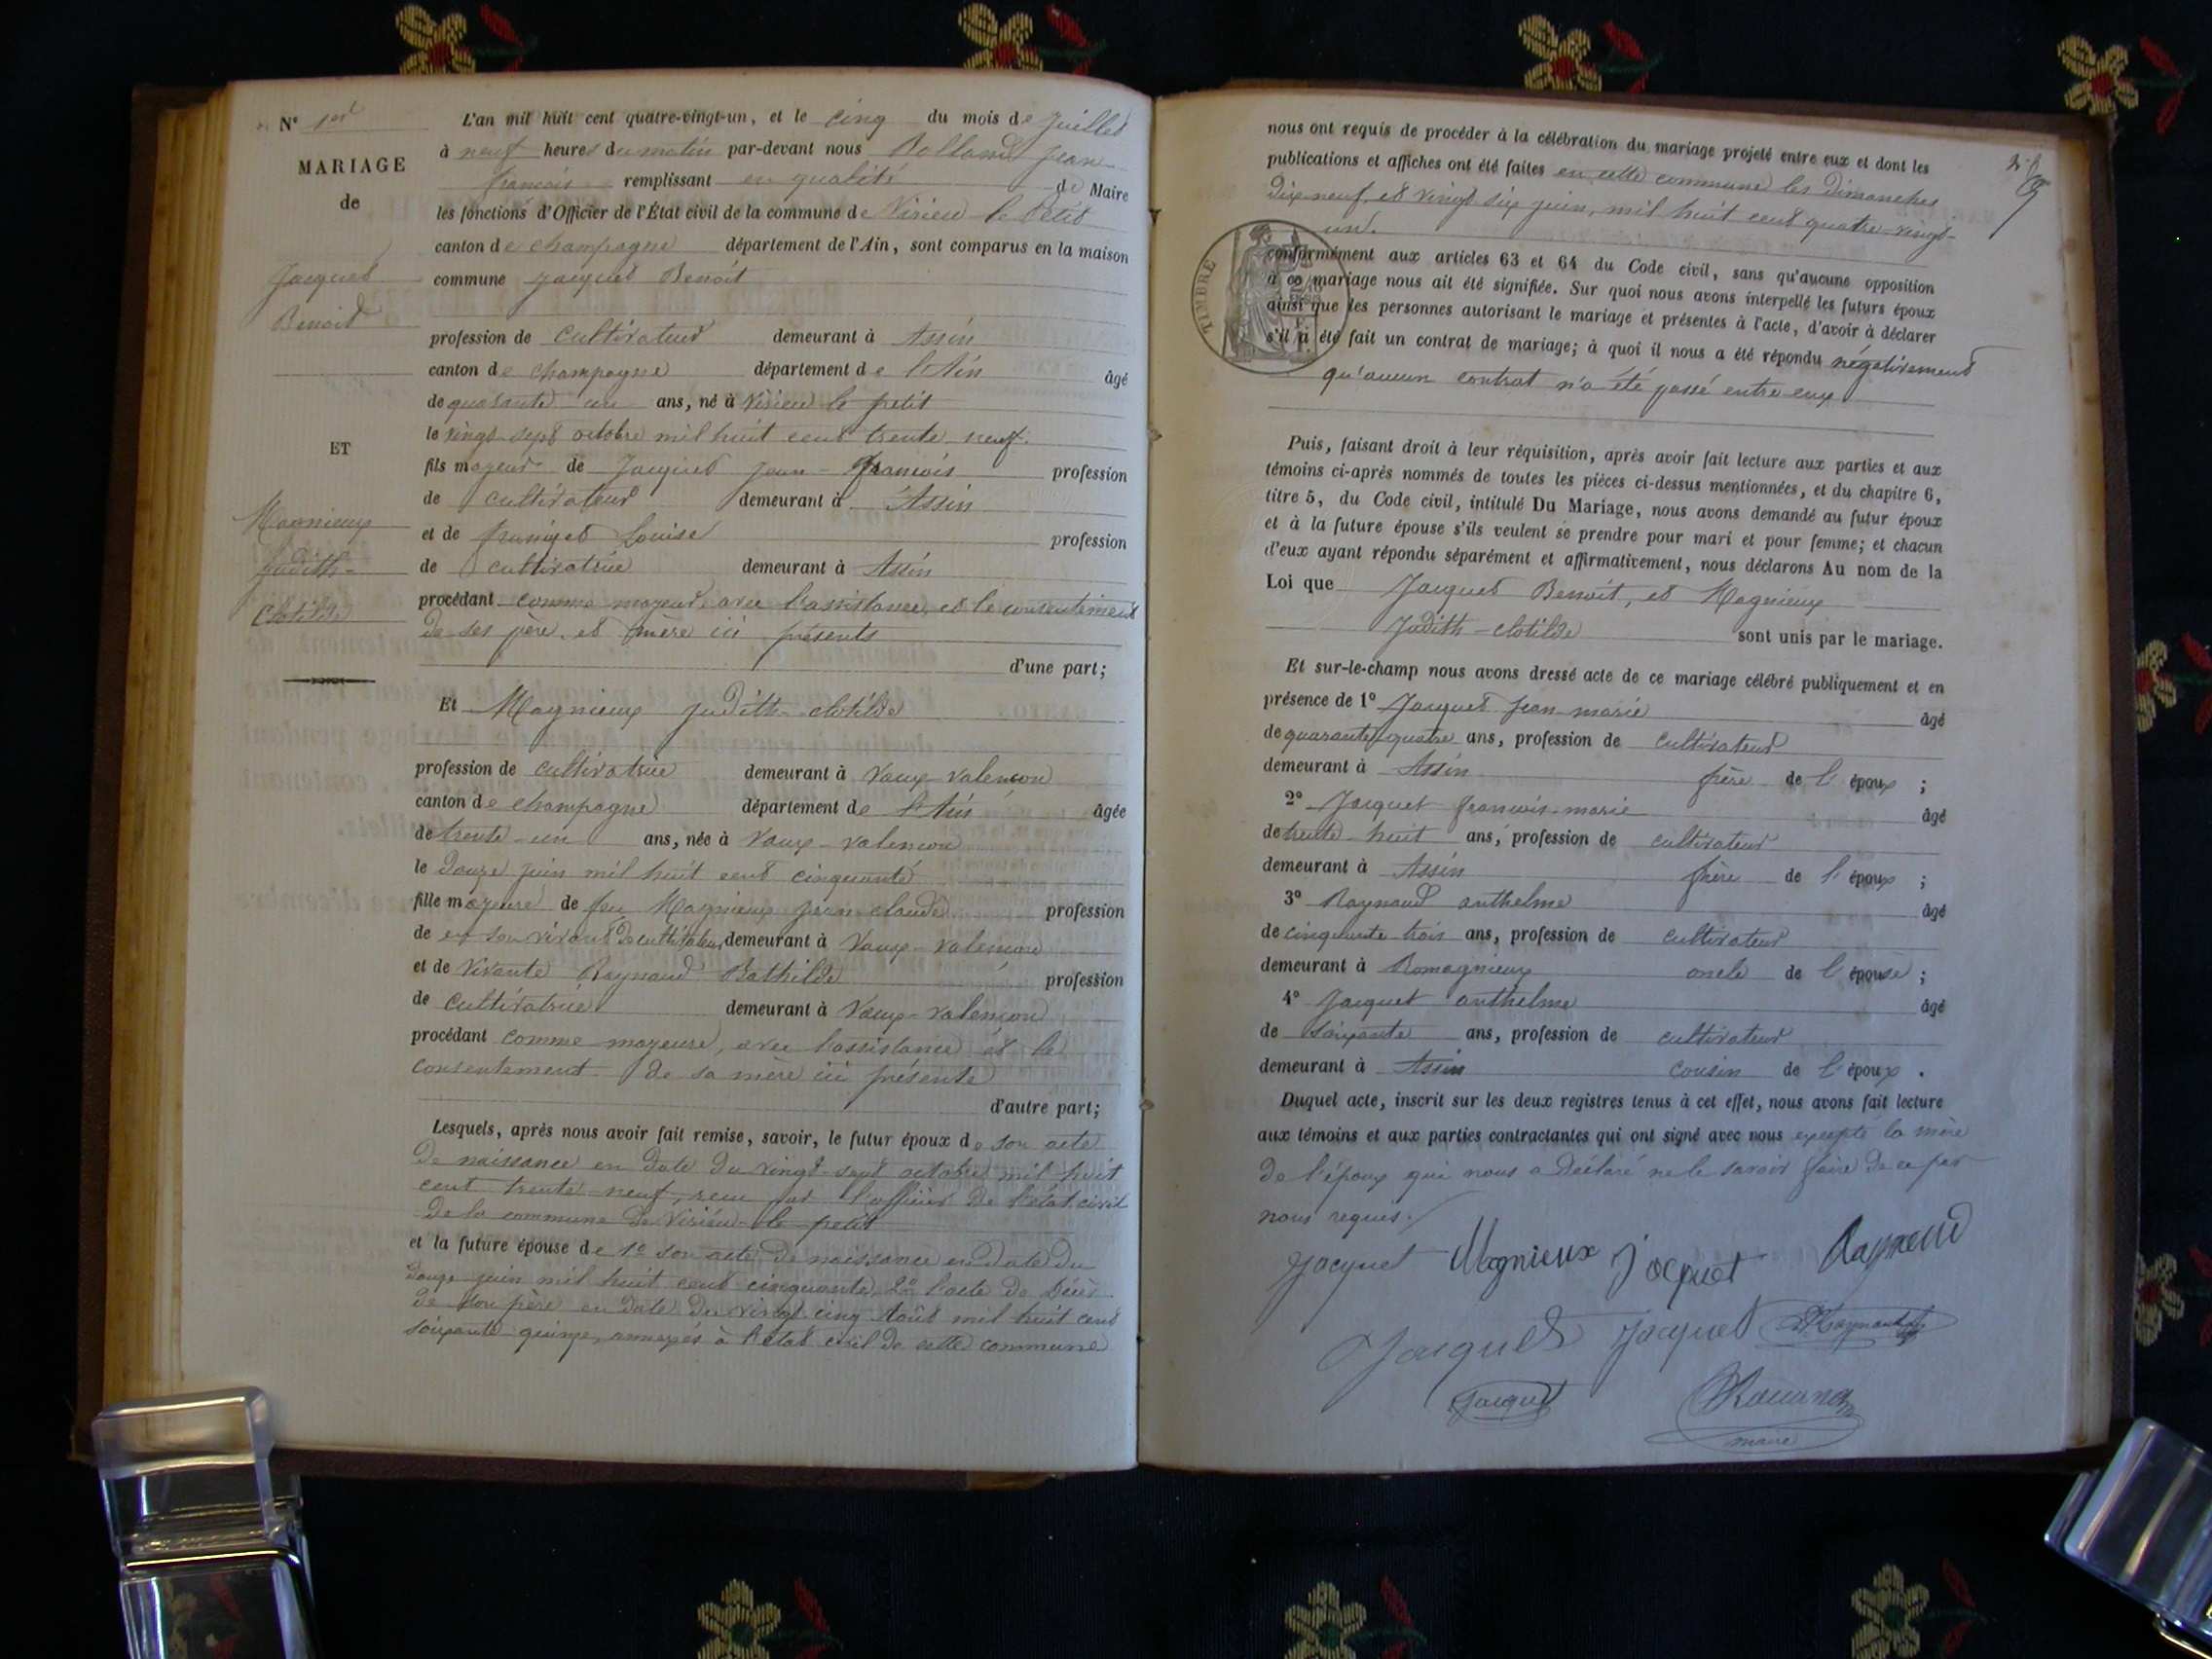 N° 1er
MARIAGE
de
Jacquet
Benoit
ET
Magnieux
Judith-
Clotilde
L'an mil huit cent quatre-vingt-un, et le cinq du mois de Juillet
à neuf heures du matin par-devant nous Rolland Jean
françois remplissant en qualité de Maire
les fonctions d'Officier de l'État civil de la commune de Virieu le Petit
canton de champagne département de l'Ain, sont comparus en la maison
commune Jacquet Benoit
profession de cultivateur demeurant à Assin
canton de champagne département de l'Ain âgé
de quarante un ans, né à Virieu le petit
le vingt sept octobre mil huit cent trente neuf.
fils majeur de Jacquet Jean-françois profession
de cultivateur demeurant à Assin
et de Louise profession
de cultivatrice demeurant à Assin
procédant comme majeur, avec l'assistance, et le consentement
de ses père et mère ici présents
d'une part;
Et Magnieux Judith-clotilde
profession de cultivatrice demeurant à Vaux-valençon
canton de champagne département de l'Ain âgée
de trente-un ans, née à Vaux-valençon
le douze juin mil huit cent cinquante
fille majeure de feu Magnieux Jean claude profession
de en son vivant de cultivateur, demeurant à Vaux-valençon
et de vivante Raynaud Bathilde profession
de cultivatrice demeurant à Vaux-valençon
procédant comme majeure, avec l'assistance et le
consentement de sa mère ici présente
d'autre part;
Lesquels, après nous avoir fait remise, savoir, le futur époux de son acte
de naissance en date du vingt-sept octobre mil huit
cent trente neuf, reçu par l'officier de l'état civil
de la commune de Virieu-le petit
et la future épouse de 1° son acte de naissance en date du
douze juin mil huit cent cinquante, 2° l'acte de décès
de son père en date du vingt cinq Août mil huit cent
soixante quinze, annexés à l'état civil de cette commune
nous ont requis de procéder à la célébration du mariage projeté entre eux et dont les
publications et affiches ont été faites en cette commune les Dimanches
dix neuf, et vingt six juin, mil huit cent quatre-vingt-
un.
TIMBRE
conformément aux articles 63 et 64 du Code civil, sans qu'aucune opposition
à ce mariage nous ait été signifiée. Sur quoi nous avons interpellé les futurs époux
ainsi que les personnes autorisant le mariage et présentes à l'acte, d'avoir à déclarer
s'il a été fait un contrat de mariage; à quoi il nous a été répondu négativement
qu'aucun contrat n'a été passé entre eux
Puis, faisant droit à leur réquisition, après avoir fait lecture aux parties et aux
témoins ci-après nommés de toutes les pièces ci-dessus mentionnées, et du chapitre 6,
titre 5, du Code civil, intitulé Du Mariage, nous avons demandé au futur époux
et à la future épouse s'ils veulent se prendre pour mari et pour femme; et chacun
d'eux ayant répondu séparément et affirmativement, nous déclarons Au nom de la
Loi que Jacquet Benoit, et Magnieux
Judith-clotilde sont unis par le mariage.
Et sur-le-champ nous avons dressé acte de ce mariage célébré publiquement et en
présence de 1° Jacquet Jean marie âgé
de quarante quatre ans, profession de cultivateur
demeurant à Assin frère de l'époux ;
2° Jacquet françois-marie âgé
de trente-huit ans, profession de cultivateur
demeurant à Assin frère de l'époux ;
3° Raynaud anthelme âgé
de cinquante trois ans, profession de cultivateur
demeurant à Romagnieux oncle de l'épouse ;
4° Jacquet anthelme âgé
de soixante ans, profession de cultivateur
demeurant à Assin cousin de l'époux .
Duquel acte, inscrit sur les deux registres tenus à cet effet, nous avons fait lecture
aux témoins et aux parties contractantes qui ont signé avec nous excepté la mère
de l'époux qui nous a déclaré ne le savoir faire de ce par
nous requis.
Jacquet Magnieux Jacquet Raynaud
Jacquet Jacquet Raynaud
Jacquet
maire